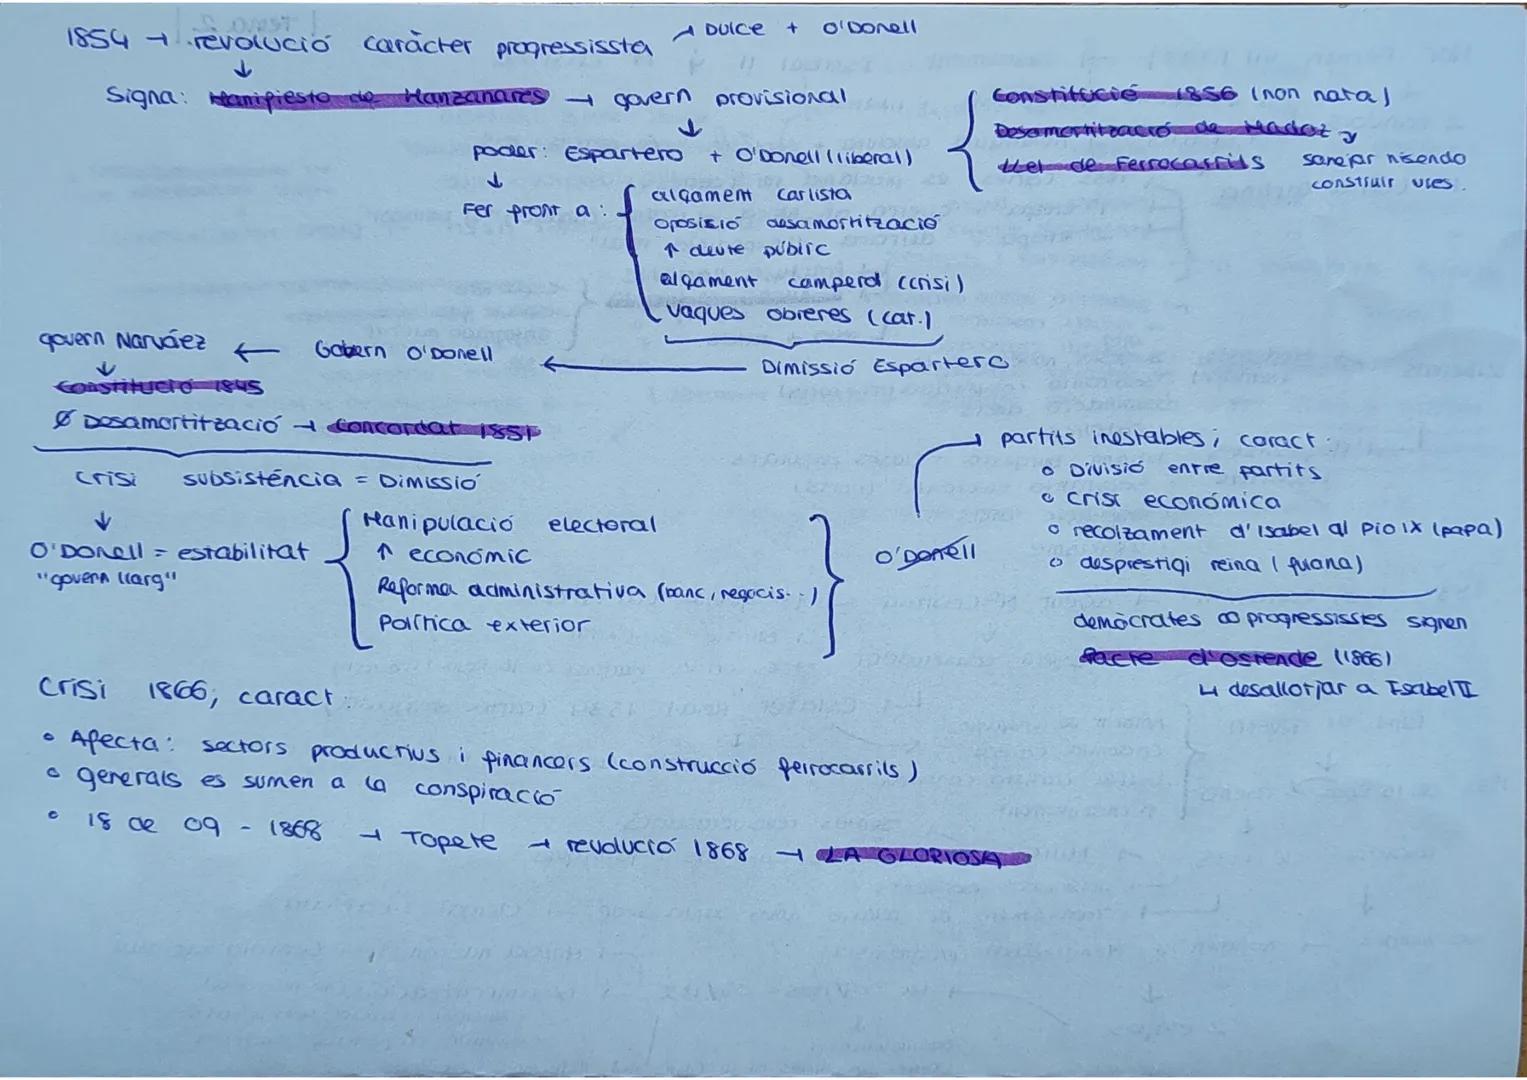 1854 → revolució caràcter progressissta → Dulce + O'Donell
↓
Signa: Manifiesto de Manzanares → govern provisional
↓
poder: Espartero + O'Donell (liberal)
Constitució 1856 (non nata)
Desamortització de Madoz
Llei de Ferrocarrils
sanejar hisendo
construir vies.
↓
Fer front a:
alçament carlista
oposició desamortització
↑ deute públic
alçament camperol (crisi)
Vagues obreres (cat.)
Dimissió Espartero
Gobern O'Donell
govern Narváez
↓
Constitució 1845
Ø Desamortització → Concordat 1851
Crisi subsistència = Dimissió
↓
O'Donell = estabilitat
"govern llarg"
Manipulació electoral
↑ econòmic
Reforma administrativa (banc, negocis...)
Política exterior
O'Donell
→ partits inestables; caract:
o Divisió entre partits
o Crisi econòmica
o recolzament d'Isabel al Pio IX (papa)
o desprestigi reina (Juana)
demòcrates ∞ progressisstes signen
Pacte d'Ostende (1866)
↳ desallotjar a Isabel II
Crisi 1866; caract:
• Afecta: sectors productius i financers (construcció ferrocarrils)
• generals es sumen a la conspiració
• 18 de 09 - 1868 → Topete → revolució 1868 → LA GLORIOSA